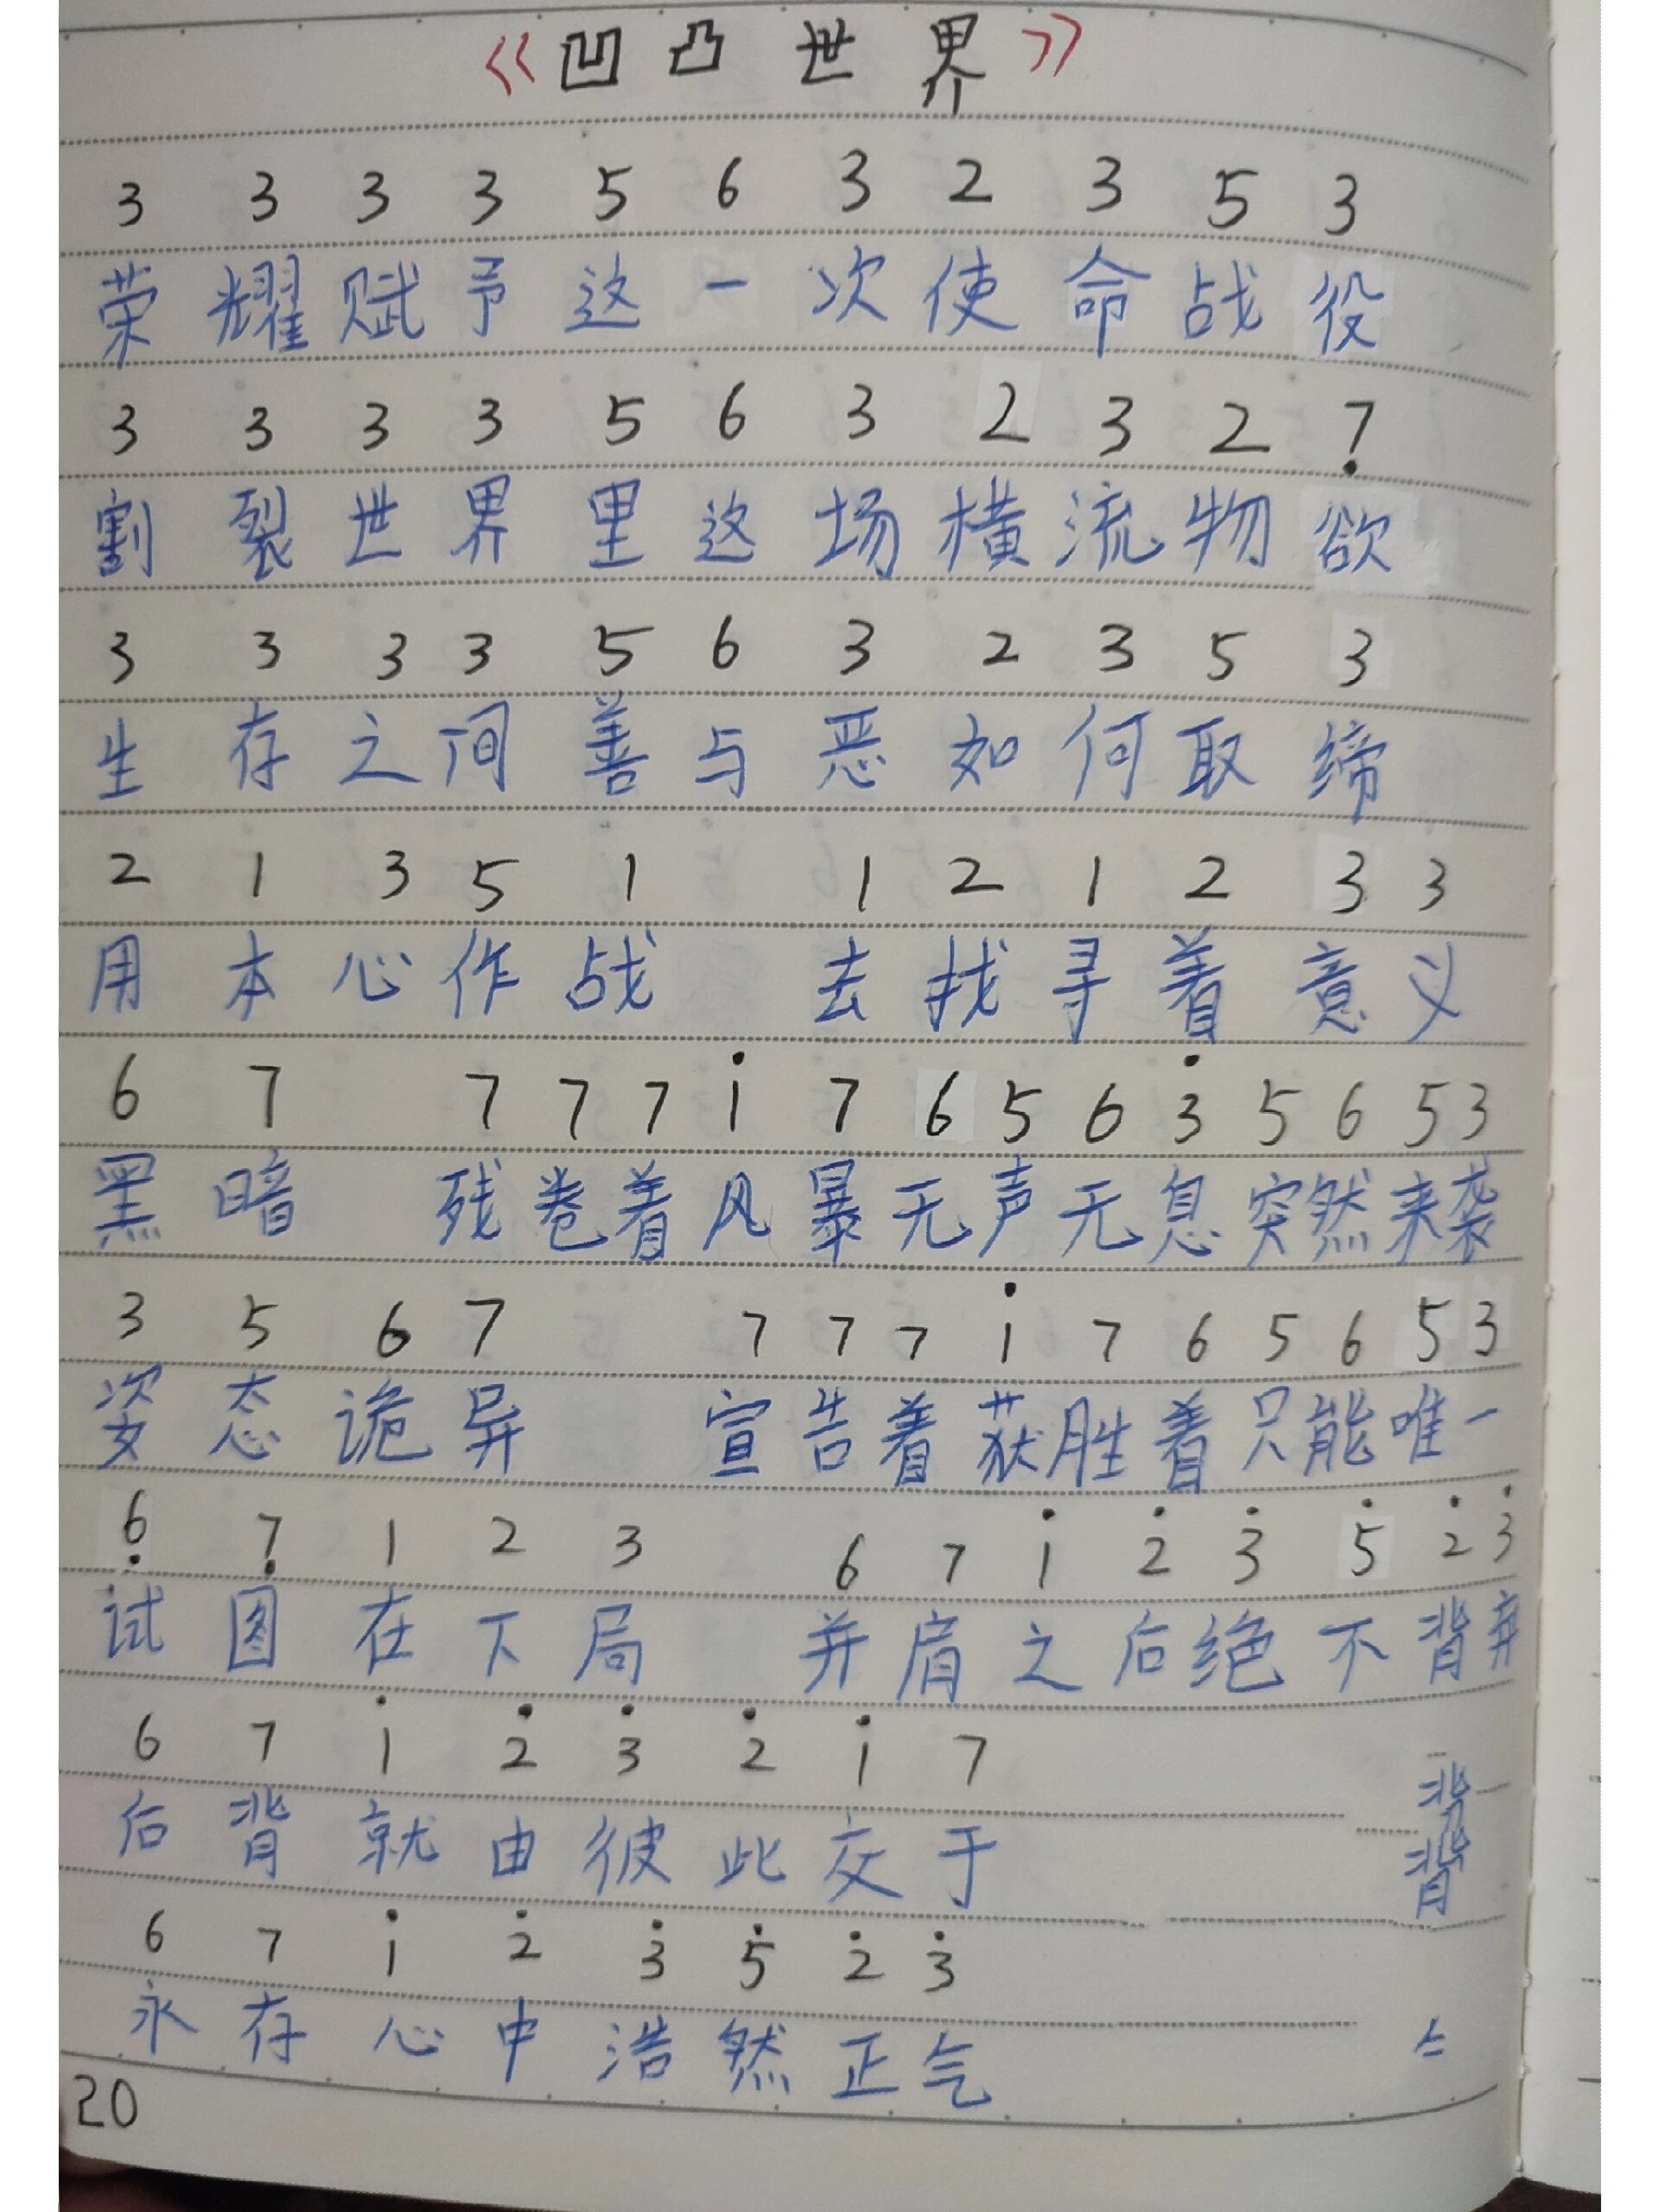 《凹凸世界》
3 3 3 3 5 6 3 2 3 5 3
荣耀赋予这一次使命战役
3 3 3 3 5 6 3 2 3 2 7̣
割裂世界里这场横流物欲
3 3 3 3 5 6 3 2 3 5 3
生存之间善与恶如何取缔
2 1 3 5 1 1 2 1 2 3 3
用本心作战 去找寻着意义
6 7 7 7 7 1̇ 7 6 5 6 3̇ 5 6 5 3
黑暗 残卷着风暴无声无息突然来袭
3 5 6 7 7 7 7 1̇ 7 6 5 6 5 3
姿态诡异 宣告着获胜着只能唯一
6̣ 7̣ 1 2 3 6 7 1̇ 2̇ 3̇ 5̇ 2̇ 3̇
试图在下局 并肩之后绝不背弃
6 7 1̇ 2̇ 3̇ 2̇ 1̇ 7
后背就由彼此交于
背
背
6 7 1̇ 2̇ 3̇ 5̇ 2̇ 3̇
永存心中浩然正气
20